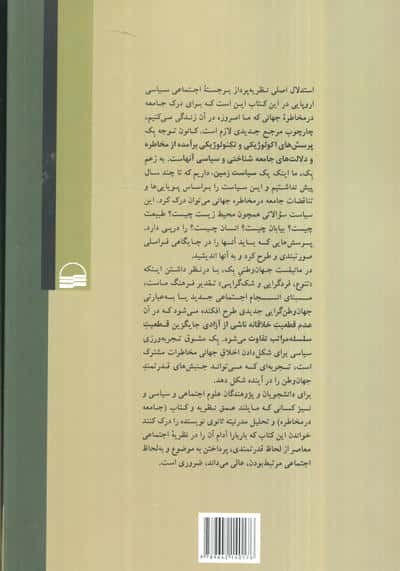 استدلال اصلی نظریه‌پرداز برجستهٔ اجتماعی سیاسی
اروپایی در این کتاب این است که برای درک جامعه
درمخاطرهٔ جهانی که ما امروزه در آن زندگی می‌کنیم،
چارچوب مرجع جدیدی لازم است. کانون توجه بِک
پرسش‌های اکولوژیکی و تکنولوژیکی برآمده از مخاطره
و دلالت‌های جامعه شناختی و سیاسی آنهاست. به زعم
بِک، ما اینک یک سیاست زمین، داریم که تا چند سال
پیش نداشتیم و این سیاست را براساس پویایی‌ها و
تناقضات جامعه درمخاطره جهانی می‌توان درک کرد. این
سیاست سؤالاتی همچون محیط زیست چیست؟ طبیعت
چیست؟ بیابان چیست؟ انسان چیست؟ را درپی دارد.
پرسش‌هایی که باید آنها را در جایگاهی فراملی
صورتبندی و طرح کرد و به آنها اندیشید.
در مانیفست جهان‌وطنی بِک، با درنظر داشتن اینکه
«تنوع، فردگرایی و شک‌گرایی» تقدیر فرهنگ ماست،
مبنای انسجام اجتماعی جدید یا به‌عبارتی
جهان‌وطن‌گرایی جدیدی طرح افکنده می‌شود که در آن
عدم قطعیت خلاقانه ناشی از آزادی جایگزین قطعیت
سلسله‌مراتب تفاوت می‌شود. بِک مشوق تجربه‌ورزی
سیاسی برای شکل‌دادن اخلاقِ جهانی مخاطرات مشترک
است، تجربه‌ای که می‌تواند جنبش‌های قدرتمندِ
جهان‌وطن را در آینده شکل دهد.
برای دانشجویان و پژوهندگان علوم اجتماعی و سیاسی و
نیز کسانی که مایلند عمق نظریه و کتاب (جامعه
درمخاطره) و تحلیل مدرنیته ثانوی نویسنده را درک کنند
خواندن این کتاب که باربارا آدام آن را در نظریهٔ اجتماعی
معاصر از لحاظ قدرتمندی، پرداختن به موضوع و به‌لحاظ
اجتماعی مرتبط‌بودن، عالی می‌داند، ضروری است.